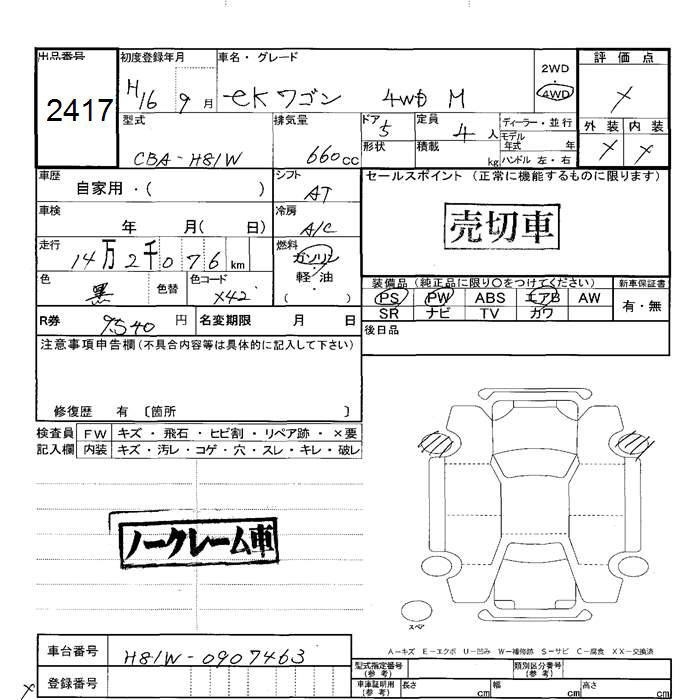 出品番号 初度登録年月 車名・グレード 評価点
2417 H16 9月 eKワゴン 4WD M 2WD 4WD ×
型式 排気量 ドア 定員 ディーラー・並行 外装 内装
CBA-H81W 660cc 5 4人 モデル年式 年 × ×
形状 積載 kg ハンドル 左・右
車歴 シフト セールスポイント (正常に機能するものに限ります)
自家用・( ) AT
車検 年 月( 日) 冷房 A/C 売切車
走行 14万2千076km 燃料 ガソリン
色 黒 色替 色コード X42 軽・油
( )
装備品 (純正品に限り○をつけてください) 新車保証書
PS PW ABS エアB AW 有・無
SR ナビ TV カワ
R券 9540円 名変期限 月 日 後日品
注意事項申告欄(不具合内容等は具体的に記入して下さい)
修復歴 有 〔箇所 〕
検査員 FW キズ・飛石・ヒビ割・リペア跡・×要
記入欄 内装 キズ・汚レ・コゲ・穴・スレ・キレ・破レ
ノークレーム車
スペア
A-キズ E-エクボ U-凹み W-補修跡 S-サビ C-腐食 XX-交換済
車台番号 H81W-0907463
型式指定番号(参考) 類別区分番号(参考)
登録番号
車庫証明用(参考) 長さ cm 幅 cm 高さ cm
×